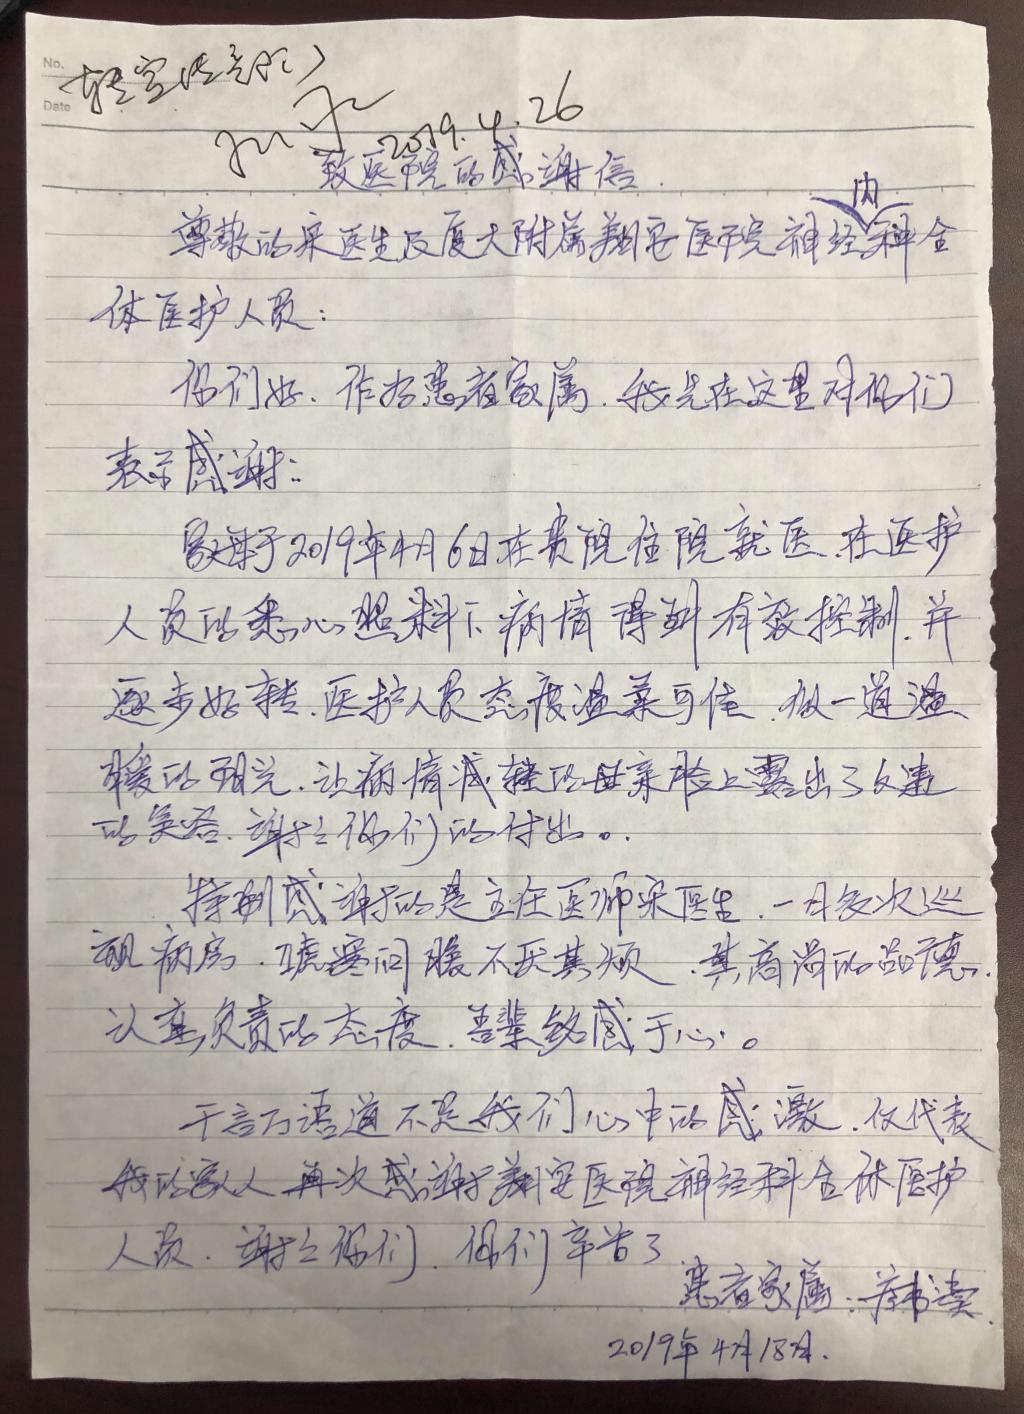 No.
Date
转宣传部门
2019.4.26
致医院的感谢信
内
尊敬的宋医生及厦大附属翔安医院神经科全
体医护人员:
你们好.作为患者家属.我先在这里对你们
表示感谢:
家母于2019年4月6日在贵院住院就医.在医护
人员的悉心照料下.病情得到有效控制.并
逐步好转.医护人员态度温柔可佳.做一道温
暖的阳光.让病情减轻的母亲脸上露出了久违
的笑容.谢谢你们的付出。
特别感谢的是主任医师宋医生.一日多次巡
视病房.嘘寒问暖不厌其烦.其高尚的品德.
认真负责的态度.吾辈铭感于心。
千言万语道不尽我们心中的感激.仅代表
我的家人再次感谢翔安医院神经科全体医护
人员.谢谢你们.你们辛苦了
患者家属:
2019年4月18日.